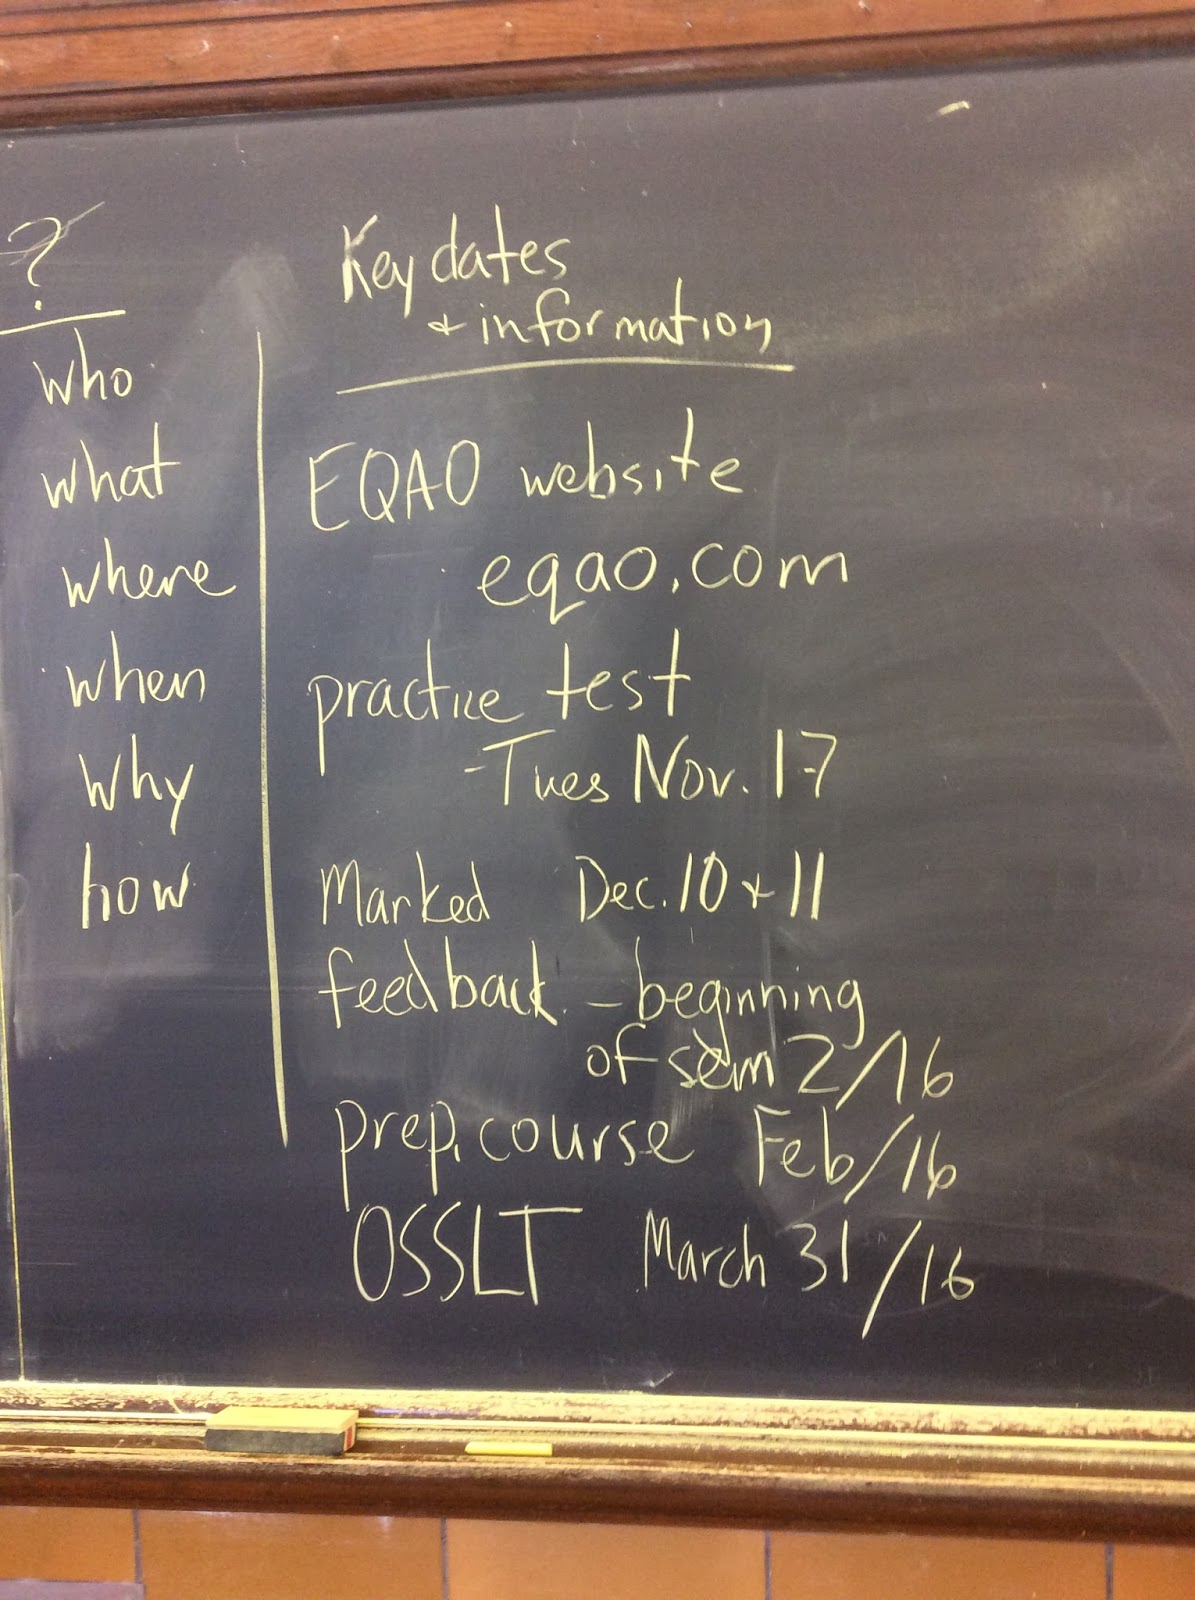 ?
who
what
where
when
why
how
Key dates
+ information
EQAO website
eqao.com
practice test
- Tues Nov. 17
Marked Dec. 10 + 11
feedback - beginning
of sem 2/16
prep. course Feb/16
OSSLT March 31/16